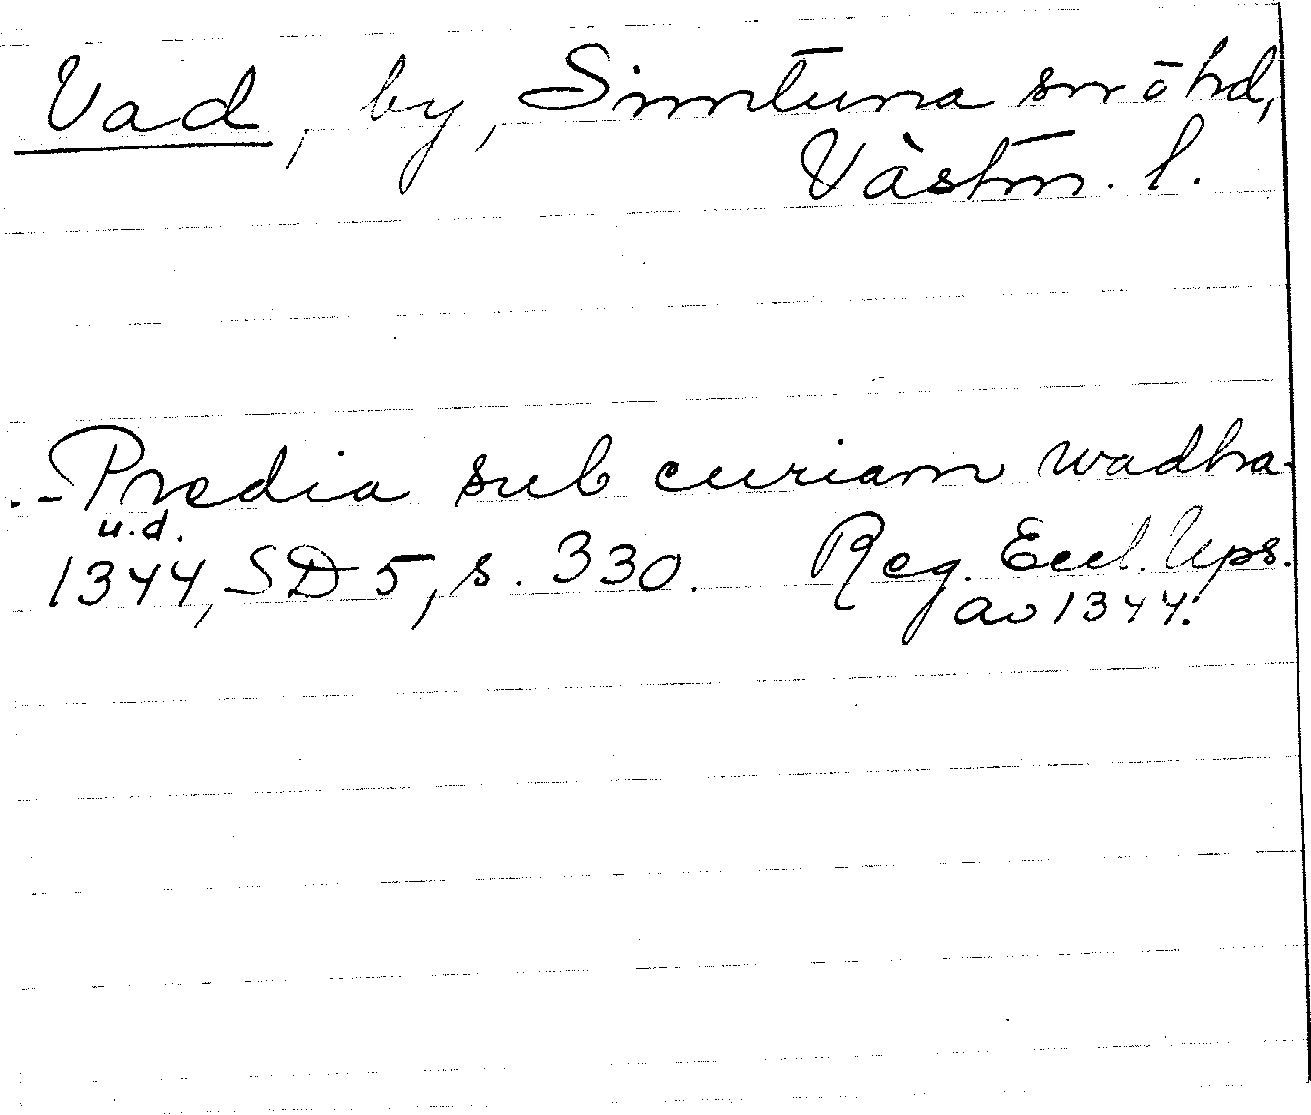 Vad, by, Simtuna sn o hd,
Västm. l.
.-Predia sub curiam wadha-
u.d.
1344, SD 5, s. 330. Reg. Eccl. Ups.
av 1344.